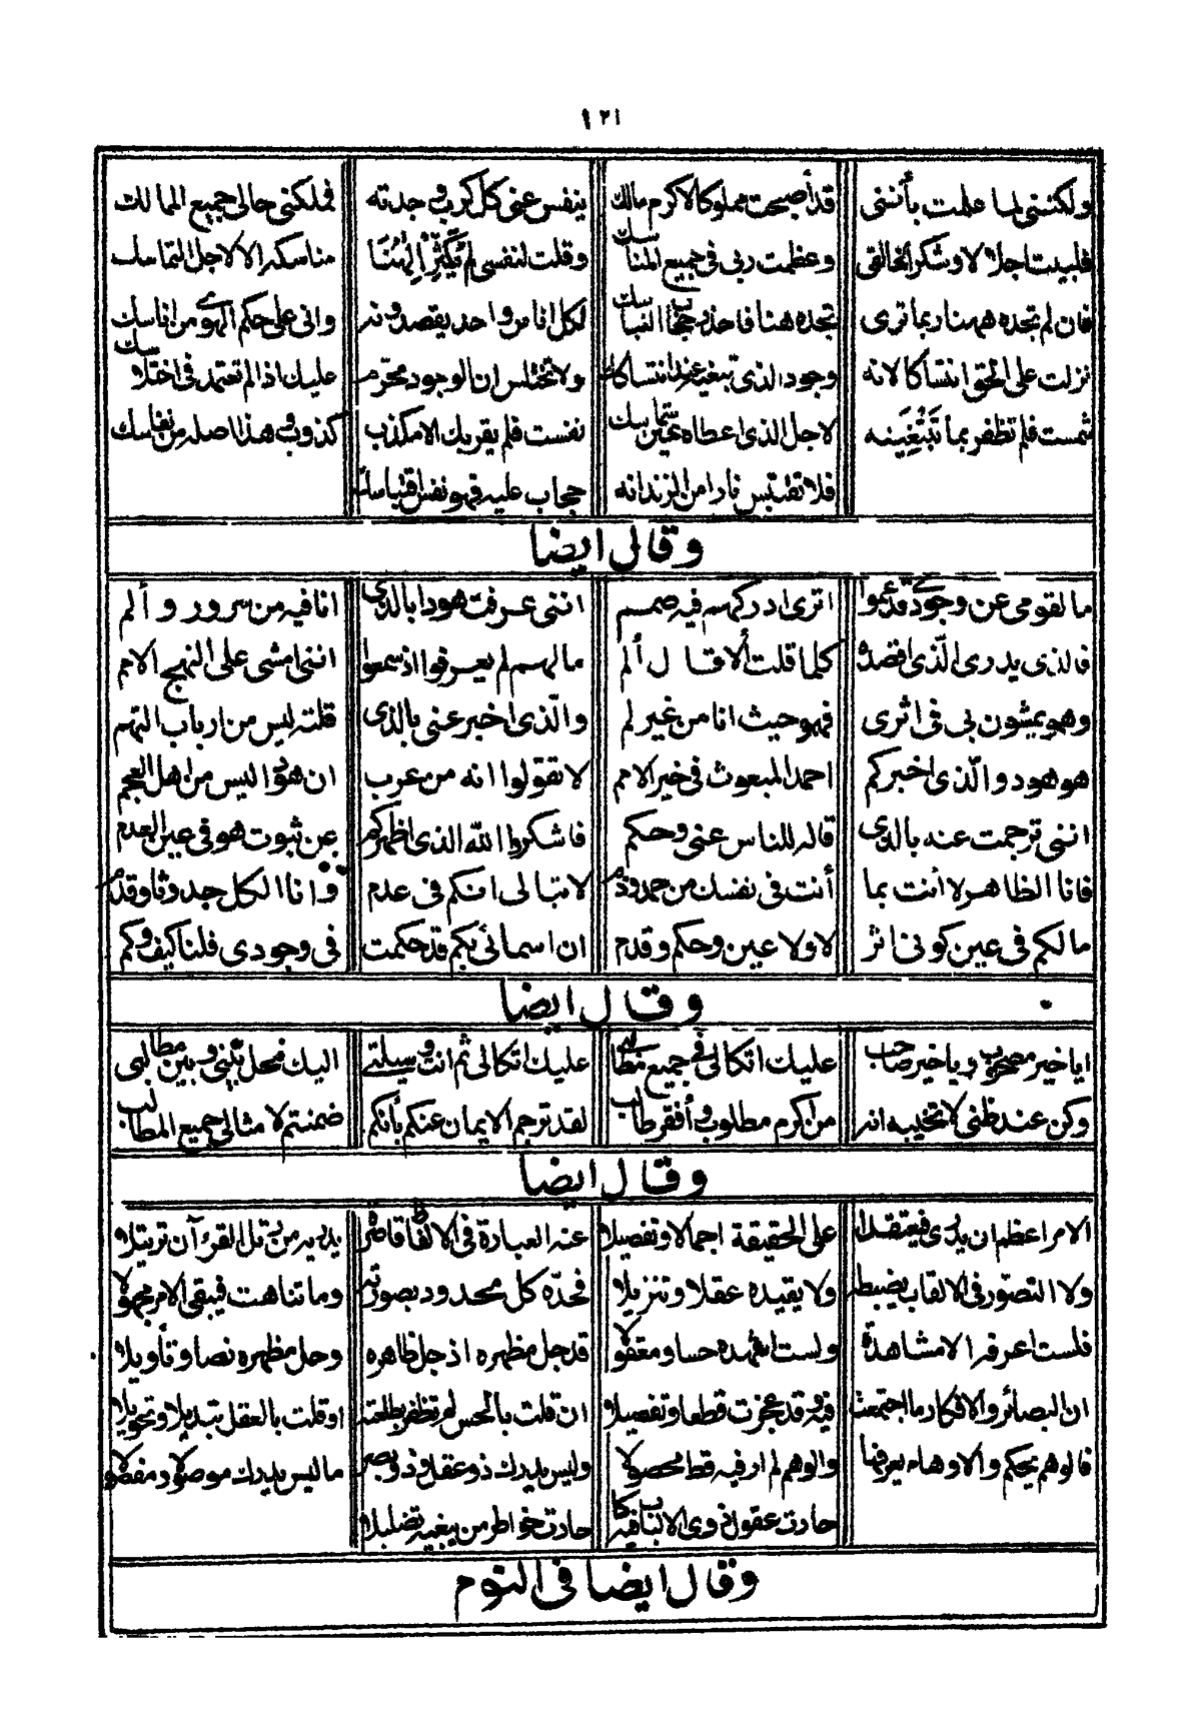 ١٢١
ولكننى لما علمت بأننى قد أصبحت مملوكا لاكرم مالك ينفس عنى كل كرب وجدته فملكنى حالى جميع الممالك
فلبيت اجلالا وشكرا لخالقى وعظمت ربى فى جميع المناسك وقلت لنفسى لم تكثر مناسكه الا لاجل التماسك
فان لم تجده ههنا ربما ترى تجده هنا فاحذر لكل اناس واحد يقصدونه وانى على حكم الهوى من اناسك
نزلت على الحق انتساكا لانه وجود الذى تبغيه عند انتساكك ولا تختلس ان الوجود محترم عليك اذا لم تعتمد فى اختلاسك
شمست فلم تظفر بما تبتغينه لاجل الذى اعطاه عين شماسك نفست فلم يقربك الا مكذب كذوب وهذا اصله من نفاسك
فلا تقتبس نارا من الزند انه حجاب عليه فهو نفس اقتباسك
وقال ايضا
ما لقومى عن وجودى قد عموا اترى ادركهم فيه صمم اننى عرفت هودا بالذى انا فيه من سرور وألم
فالذى يدرى الذى اقصده كلما قلت ألا قال ألم ما لهم لم يعرفوا اذ سمعوا اننى امشى على النهج الامم
وهو يمشون بى فى اثرى فهو حيث انا من غير لم والذى اخبر عنى بالذى قلته ليس من ارباب التهم
هو هود والذى اخبركم احمد المبعوث فى خير الامم لا تقولوا انه من عرب ان هودا ليس من اهل العجم
اننى ترجمت عنه بالذى قاله للناس عنى وحكم فاشكروا الله الذى اظهركم عن ثبوت هو فى عين العدم
فانا الظاهر لا انت بما أنت فى نفسك من حمد وذم لا تبالى انكم فى عدم وانا الكل حدوثا وقدم
ما لكم فى عين كونى اثر لا ولا عين وحكم وقدم ان اسمائى بكم قد حكمت فى وجودى فلنا كيف وكم
وقال ايضا
ايا خير مصحوب ويا خير صاحب عليك اتكالى فى جميع مطالبى عليك اتكالى ثم انت وسيلتى اليك فحل بينى وبين مطالبى
وكن عند ظنى لا تخيبه انه من اكرم مطلوب وأفقر طالب لقد ترجم الايمان عنكم بأنكم ضمنتم لامثالى جميع المطالب
وقال ايضا
الامر اعظم ان يدرى فيعتقدا على الحقيقة اجمالا وتفصيلا عنه العبارة فى الالفاظ قاصرة من يرتل القرءآن ترتيلا
ولا التصور فى الالقاب يضبطه ولا يقيده عقلا وتنزيلا فحده كل محدود بصورته وما تناهت فيبقى الامر مجهولا
فلست اعرفه الا مشاهدة ولست اشهده حسا ومعقولا قد جل مظهره اذ جل ظاهره وحل مظهره نصا وتأويلا
ان البصائر والافكار ما اجتمعت فيه وقد عجزت قطعا وتفصيلا ان قلت بالحس لم تظفر بطلعته او قلت بالعقل تبديلا وتحويلا
فالوهم يحكم والاوهام تعرفها والوهم لم ار فيه قط محصولا وليس يدرك ذو عقل وذو بصر ما ليس يدرك موصولا ومفصولا
حارت عقول ذوى الالباب فيه كما حارت خواطر من يبغيه تضليلا
وقال ايضا فى النوم